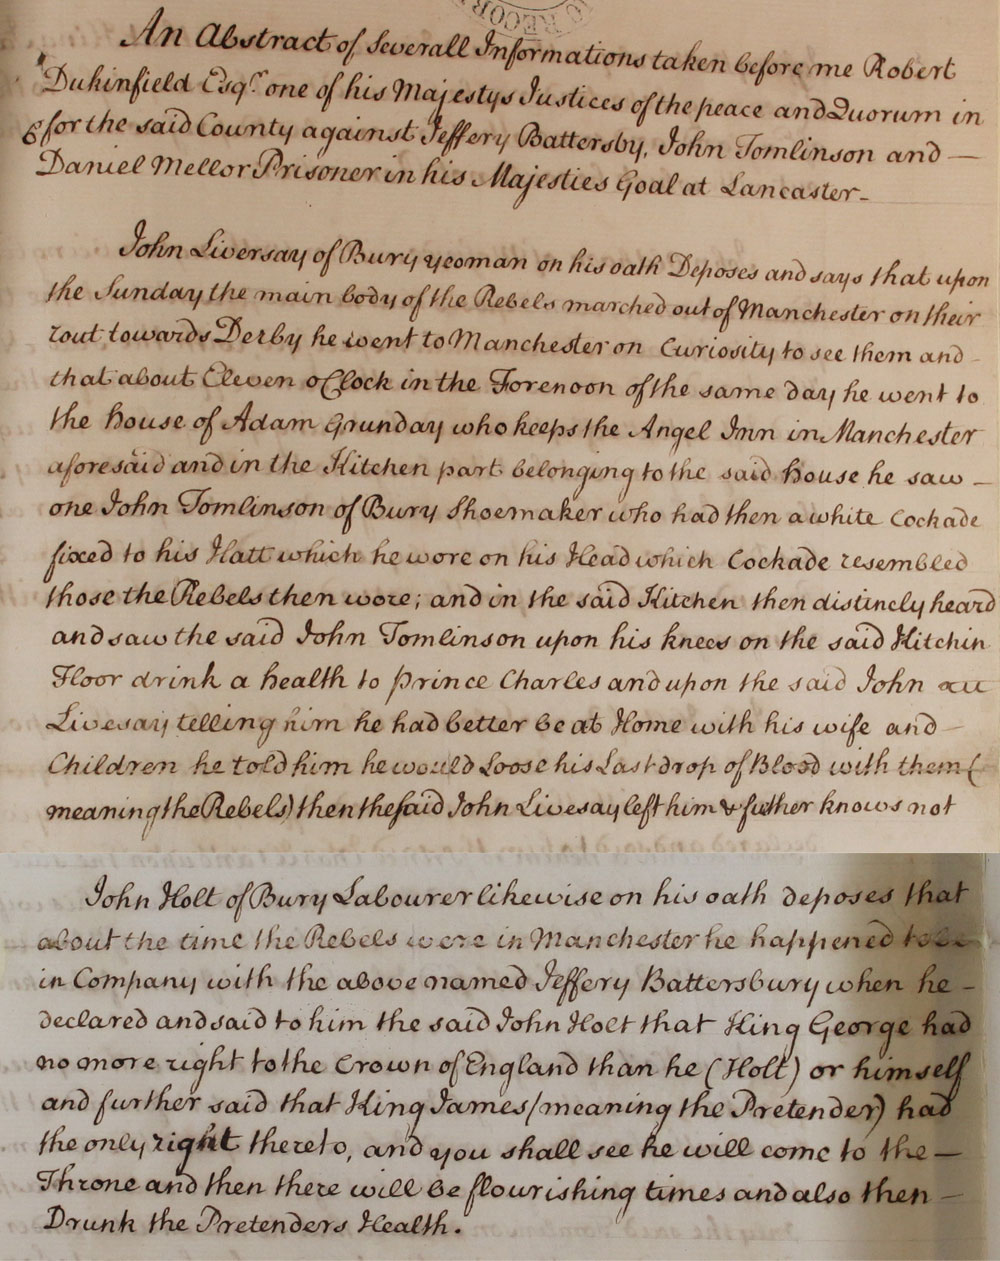 RECOR
An Abstract of Severall Informations taken before me Robert
Dukinfield Esqr. one of his Majestys Justices of the peace and Quorum in
& for the said County against Jeffery Battersby, John Tomlinson and —
Daniel Mellor Prisoner in his Majesties Goal at Lancaster –
John Liversay of Bury yeoman on his oath Deposes and says that upon
the Sunday the main body of the Rebels marched out of Manchester on their
rout, towards Derby he went to Manchester on Curiosity to see them and –
that about Eleven o Clock in the Forenoon of the same day he went to
the house of Adam Grunday who keeps the Angel Inn in Manchester
aforesaid and in the Kitchen part belonging to the said house he saw –
one John Tomlinson of Bury Shoemaker who had then a white Cockade
fixed to his Hatt which he wore on his Head which Cockade resembled
those the Rebels then wore; and in the said Kitchen then distincly heard
and saw the said John Tomlinson upon his knees on the said Kitchin
Floor drink a health to prince Charles and upon the said John
Livesay telling him he had better be at Home with his wife and –
Children he told him he would Loose his Last drop of Blood with them (
meaning the Rebels) then the said John Livesay left him & futher knows not
John Holt of Bury Labourer likewise on his oath deposes that
about the time the Rebels were in Manchester he happened to be
in Company with the above named Jeffery Battersbury when he –
declared and said to him the said John Holt that King George had
no more right to the Crown of England than he (Holt) or himself
and further said that King James / meaning the Pretender) had
the only right thereto, and you shall see he will come to the —
Throne and then there will be flourishing times and also then —
Drunk the Pretenders Health.